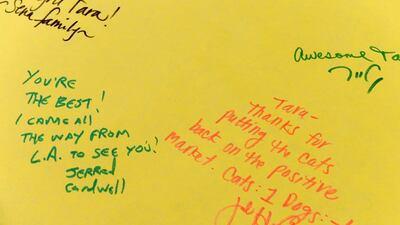 Tara!
Sena family
Awesome Ta
YOU'RE
THE BEST!
I CAME ALL
THE WAY FROM
L.A. TO SEE YOU!
JERRED
CARDWELL
Tara-
Thanks for
putting the cats
back on the positive
market. Cats: 1 Dogs: -1